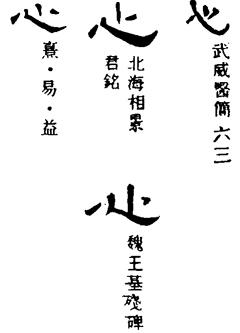 心
武威醫簡六三
心
北海相景
君銘
心
熹·易·益
心
魏王基殘碑